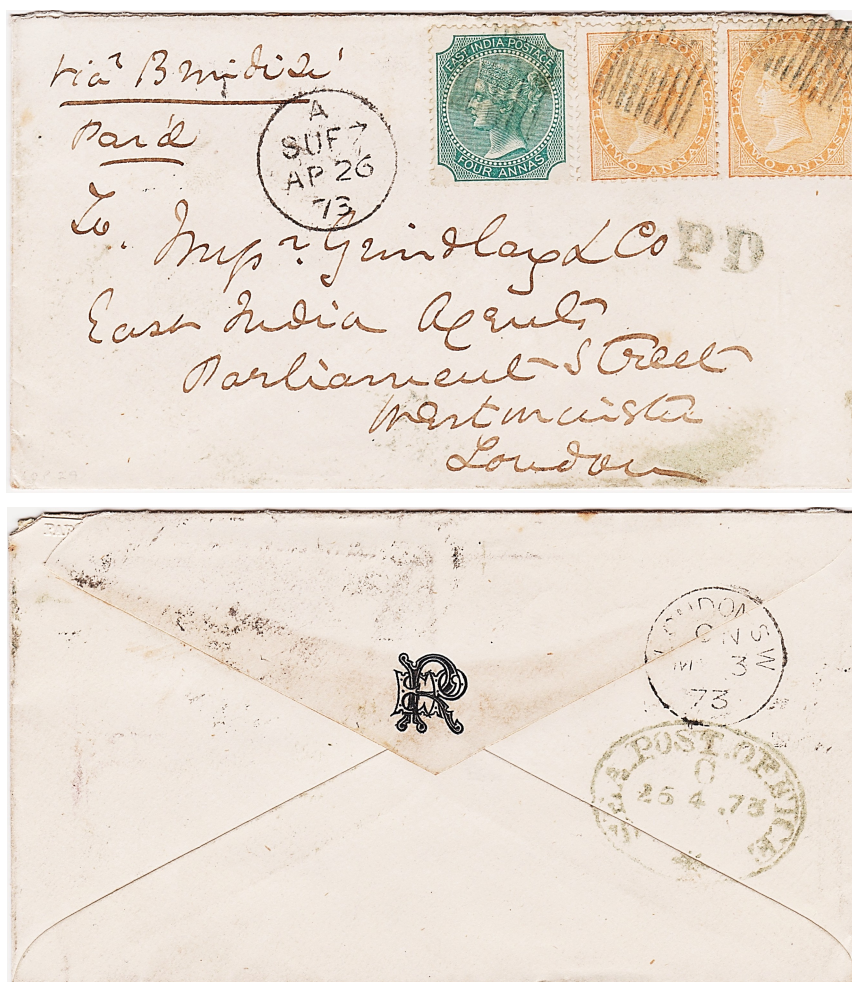 via Brindisi
Paid
A
SUEZ
AP 26
73
EAST INDIA POSTAGE
FOUR ANNAS
EAST INDIA
TWO ANNAS
TWO ANNAS
PD
To,
Grindlay & Co
East India Agents
Parliament Street
Westminster
London
LONDON S W
CN
3
73
SEA POST OFFICE
C
25 4 .73